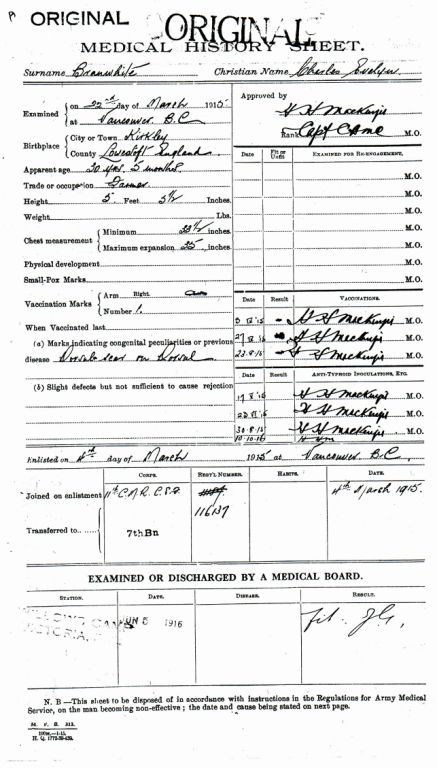 ORIGINAL
ORIGINAL
MEDICAL HISTORY SHEET.
Surname Branwhite Christian Name Charles Evelyn
Examined { on 22nd day of March 1915
at Vancouver B.C
Birthplace { City or Town Kirkley
County Lowestoft England
Apparent age 30 yrs. 5 months.
Trade or occupation Farmer
Height 5 Feet 5½ Inches.
Weight Lbs.
Chest measurement { Minimum 33½ inches
Maximum expansion 35 inches.
Physical development
Small-Pox Marks
Vaccination Marks { Arm Right.
Number 1.
When Vaccinated last
(a) Marks indicating congenital peculiarities or previous
disease scar on
(b) Slight defects but not sufficient to cause rejection
Approved by
H H MacKenzie
Rank Capt CAMC M.O.
Date Fit or Unfit Examined for Re-engagement.
M.O.
M.O.
M.O.
M.O.
M.O.
M.O.
Date Result Vaccinations.
H H MacKenzie M.O.
H H MacKenzie M.O.
23.8.15 H H MacKenzie M.O.
Date Result Anti-Typhoid Inoculations, Etc.
H H MacKenzie M.O.
H H MacKenzie M.O.
30.8.15 H H MacKenzie M.O.
10.10.16
Enlisted on 4th day of March 1915 at Vancouver B.C.
Corps. Regt'l Number. Habits. Date.
Joined on enlistment 11th C.M.R. C.E.F. 116137 4th March 1915.
Transferred to 7thBn
EXAMINED OR DISCHARGED BY A MEDICAL BOARD.
Station. Date. Disease. Result.
WILLOWS CAMP JUN 5 1916 fit.
VICTORIA.
N. B—This sheet to be disposed of in accordance with instructions in the Regulations for Army Medical
Service, on the man becoming non-effective; the date and cause being stated on next page.
M. F. B. 313.
H. Q. 1772-39-439.